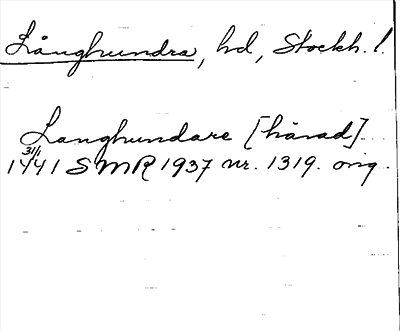 Långhundra, hd, Stockh. l.
Langhundare [härad].
1441 31/1 SMR 1937 nr. 1319. orig.